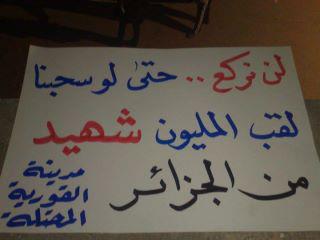 لن نركع .. حتى لو سحبنا
لقب المليون شهيد
من الجزائر
مدينة
القورية
المحتلة